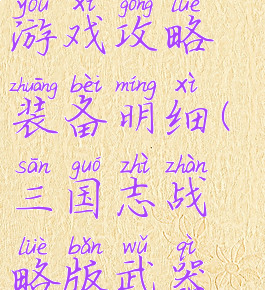 yóu xì gōng lüè
游戏攻略
zhuāng bèi míng xì
装备明细(
sān guó zhì zhàn
三国志战
lüè bǎn wǔ qì
略版武器